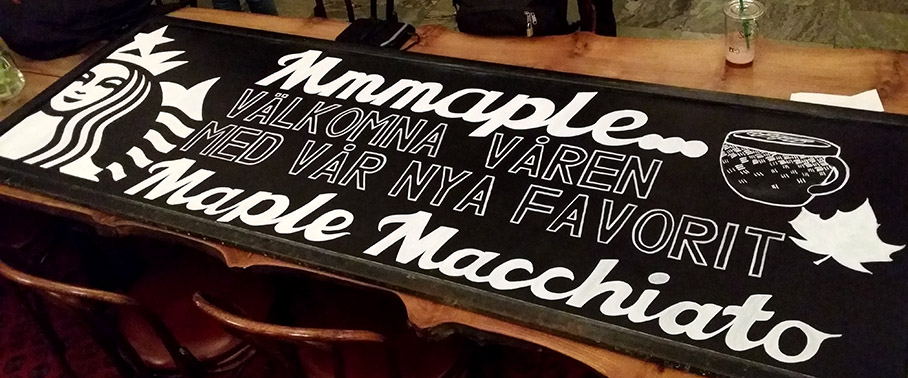 Mmmaple...
VÄLKOMNA VÅREN
MED VÅR NYA FAVORIT
Maple Macchiato